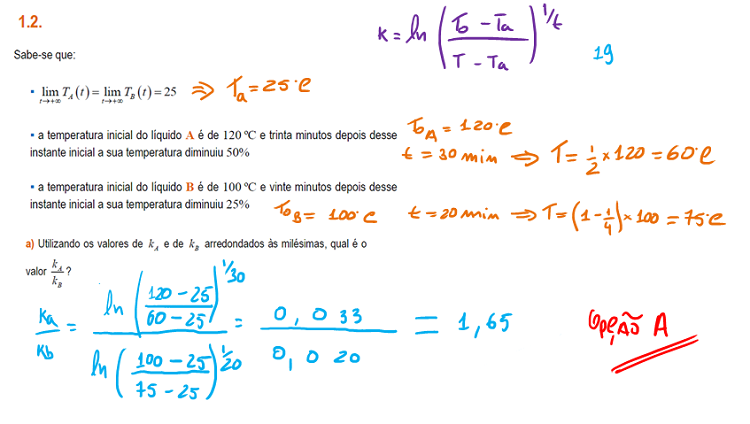 1.2.
k = ln ( (To - Ta) / (T - Ta) )^1/t
19
Sabe-se que:
▪ lim t→+∞ T_A(t) = lim t→+∞ T_B(t) = 25 ⇒ Ta = 25°C
▪ a temperatura inicial do líquido A é de 120 ºC e trinta minutos depois desse
instante inicial a sua temperatura diminuiu 50%
To_A = 120°C
t = 30 min ⇒ T = 1/2 × 120 = 60°C
▪ a temperatura inicial do líquido B é de 100 ºC e vinte minutos depois desse
instante inicial a sua temperatura diminuiu 25%
To_B = 100°C t = 20 min ⇒ T = (1 - 1/4) × 100 = 75°C
a) Utilizando os valores de k_A e de k_B arredondados às milésimas, qual é o
valor k_A/k_B?
Ka/Kb = ln ( (120 - 25) / (60 - 25) )^1/30 / ln ( (100 - 25) / (75 - 25) )^1/20 = 0,033 / 0,020 = 1,65
OPÇÃO A